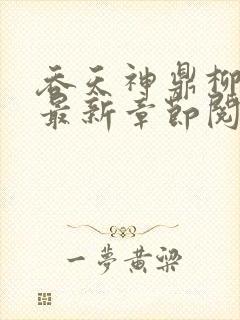 吞天神鼎柳
最新章節閱
一夢黄粱